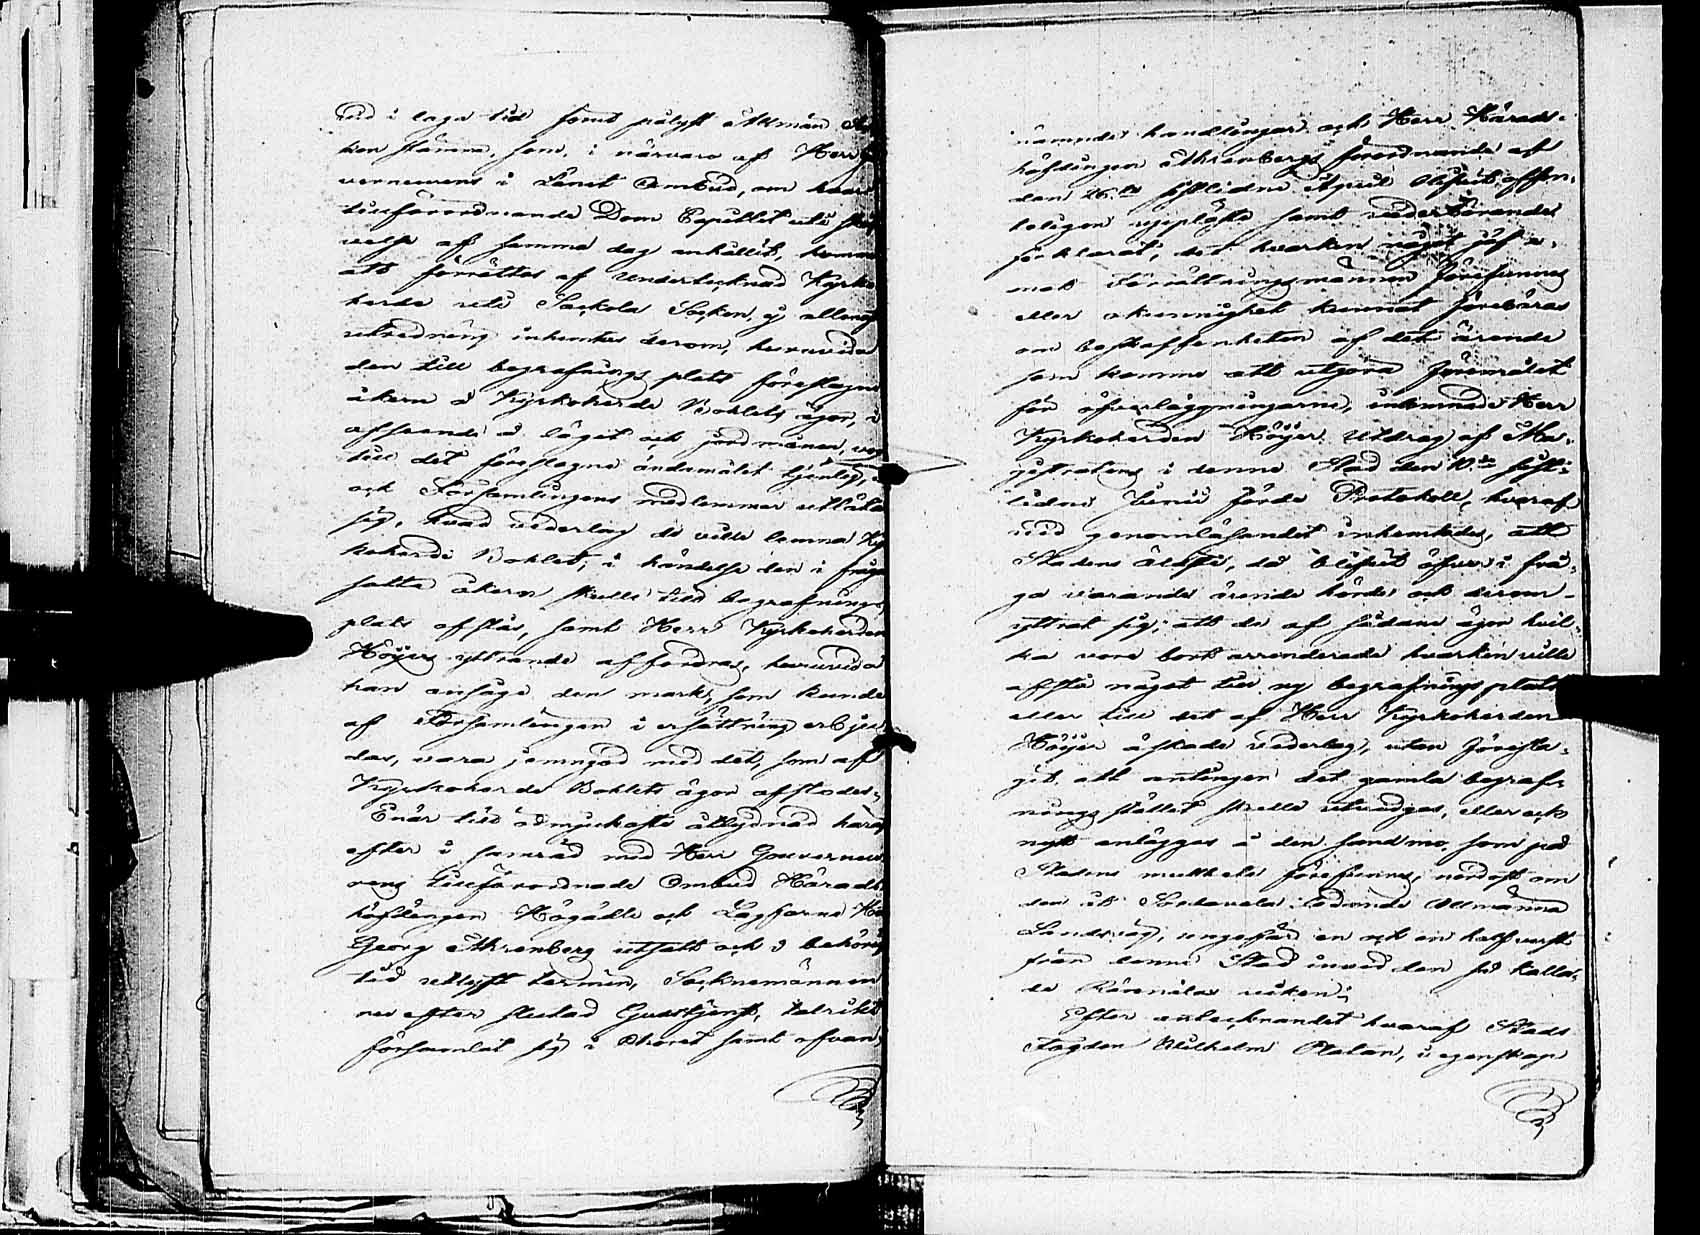 vid i laga tid förut pålyst Allmän
ken stämma, som, i närvaro af Herr
verneurens i Länet Ombud, om hvars
tillförordnande Dom Capitlet uti
velse af samma dag anhållit, komme
att förrättas af undertecknad Kyrko
herde uti Sackola Socken, ej allenast
utredning inhemtas derom, huruvida
den till begrafnings plats föreslagne
åkern å Kyrkoherde Bohlets ägor, i
afseende å läget och jordmånen, vore
till det föreslagne ändamålet tjenlig,
och Församlingens medlemmar utlåta
sig, hvad vederlag de ville lemna Kyr
koherde Bohlet, i händelse den i fråga
satta åkern skulle till begrafnings
plats afstås, samt Herr Kyrkoherden
Höijers yttrande affordras, huruvida
han ansåge den mark, som kunde
af Församlingen i ersättning erbju
das, vara jemngod med det, som af
Kyrkoherde Bohlets ägor afstodes;
Enär till ödmjukaste åtlydnad häraf
efter i samråd med Herr Gouverneu
rens tillförordnade Ombud Härads
höfdingen Högädle och Lagfarne
Georg Ahrenberg utsatt och i behörig
tid utlyst termin, Socknemännen
nu efter slutad Gudstjenst, talrikt
församlat sig i Choret samt ofvan
nämnde handlingar och Herr Härads-
höfdingen Ahrenbergs förordnande af
den 26.te sistlidne April blifvit offen-
teligen uppläste samt vederbörande
förklarat, det hvarken något jäf e-
mot Förrättningsmännen förefunnes
eller okunnighet kunnat förebäras
om beskaffenheten af det ärende
som komme att utgöra föremålet
för öfverläggningarne, inlemnade Herr
Kyrkoherden Höijer Utdrag af Ma-
gistratens i denne Stad den 10.de sist-
lidne Junii förde Protokoll, hvaraf
vid genomläsandet inhemtades, att
Stadens Äldste, då blifvit öfver i frå-
ga varande ärende hörde och derom
yttrat sig; att de af sådane ägor hvil-
ka vore bort arrenderade hvarken ville
afstå något till ny begrafnings plats
eller till det af Herr Kyrkoherden
Höijer äskade vederlag, utan föresla-
git, att antingen det gamla begraf-
nings stället skulle utvidgas, eller ock
nytt anlägges å den sandmo, som på
Stadens mulbete förefinnes, nordost om
den åt Sordavala ledande Allmänna
Landsväg, ungefär en och en half verst
från denne Stad invid den så kalla-
de viken;
Efter antecknandet hvaraf Stads
Fogden Wilhelm Platan, i egenskap